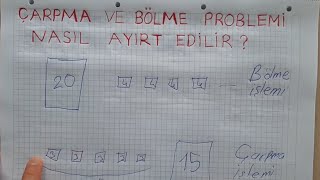 ÇARPMA VE BÖLME PROBLEMİ
NASIL AYIRT EDİLİR?
20
Bölme
işlemi
15
Çarpma
işlemi